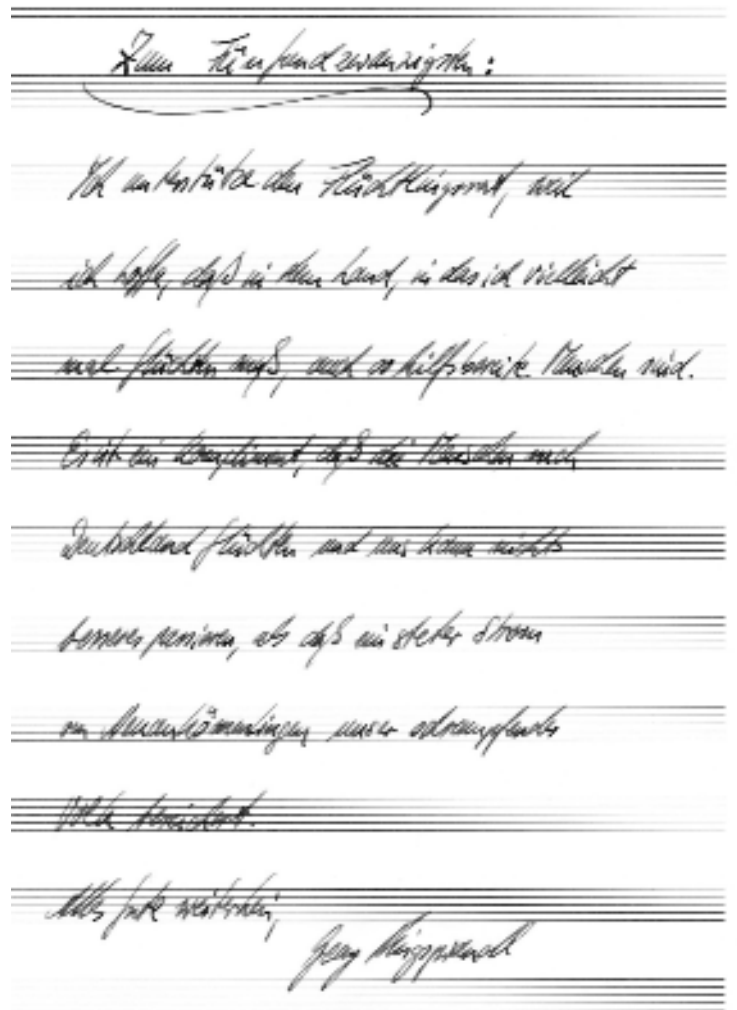 Zum Fünfundzwanzigsten:
Ich unterstütze den Flüchtlingsrat, weil
ich hoffe, daß in dem Land, in das ich vielleicht
mal flüchten muß, auch so hilfsbereite Menschen sind.
Es ist ein Kompliment, daß die Menschen nach
Deutschland flüchten und uns kann nichts
besseres passieren, als daß ein steter Strom
von Neuankömmlingen unser schrumpfendes
Volk bereichert.
Alles Gute weiterhin,
Georg